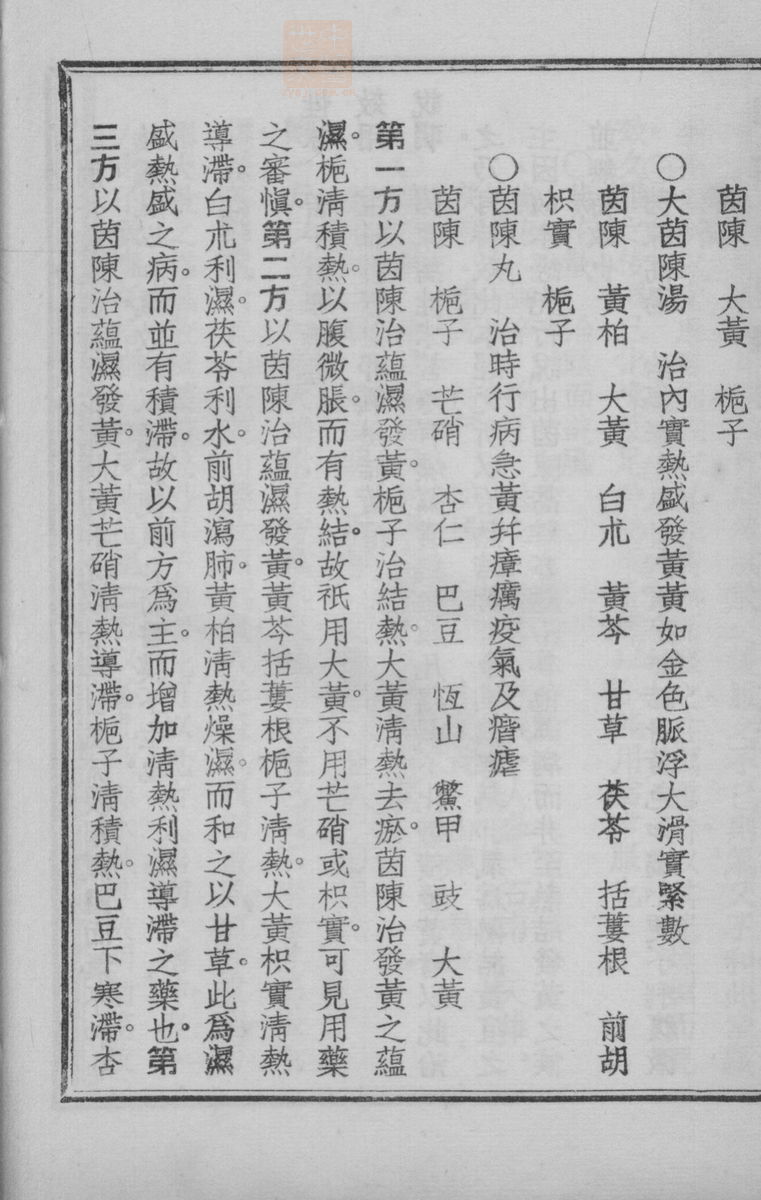 茵陳　大黃　梔子
○大茵陳湯　治內實熱盛發黃黃如金色脈浮大滑實緊數
茵陳　黃柏　大黃　白朮　黃芩　甘草　茯苓　括蔞根　前胡
枳實　梔子
○茵陳丸　治時行病急黃幷瘴癘疫氣及㾬瘧
茵陳　梔子　芒硝　杏仁　巴豆　恆山　鱉甲　豉　大黃
第一方以茵陳治蘊濕發黃。梔子治結熱。大黃淸熱去瘀。茵陳治發黃之蘊
濕。梔淸積熱。以腹微脹。而有熱結。故祇用大黃。不用芒硝或枳實。可見用藥
之審愼。第二方以茵陳治蘊濕發黃。黃芩括蔞根梔子淸熱。大黃枳實淸熱
導滯。白朮利濕。茯苓利水。前胡瀉肺。黃柏淸熱燥濕。而和之以甘草。此爲濕
盛熱盛之病。而並有積滯。故以前方爲主。而增加淸熱利濕導滯之藥也。第
三方以茵陳治蘊濕發黃。大黃芒硝淸熱導滯。梔子淸積熱。巴豆下寒滯。杏